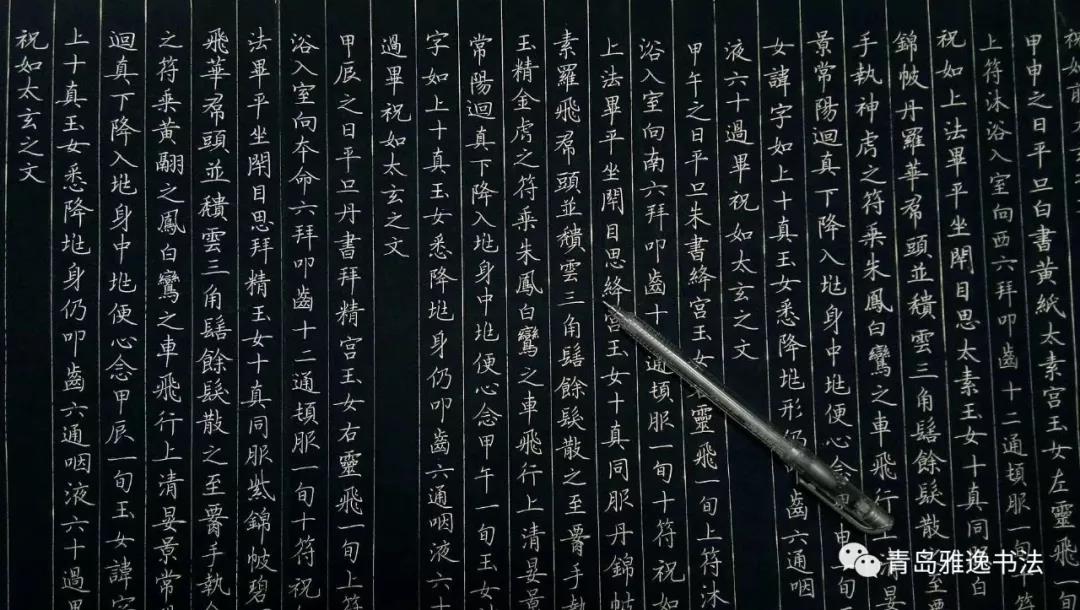 甲申之日平旦白書黃紙太素宮玉女左靈飛一旬
上符沐浴入室向西六拜叩齒十二通頓服一旬十符
祝如上法畢平坐閉目思太素玉女十真同服白
錦帔丹羅華帬頭並穨雲三角髻餘髮散至
手執神虎之符乘朱鳳白鸞之車飛行上清晏
景常陽迴真下降入兆身中兆便心念甲申一旬
女諱字如上十真玉女悉降兆形仍齒六通咽
液六十過畢祝如太玄之文
甲午之日平旦朱書絳宮玉女靈飛一旬上符沐
浴入室向南六拜叩齒十通頓服一旬十符祝如
上法畢平坐閉目思絳宮玉女十真同服丹錦帔
素羅飛帬頭並穨雲三角髻餘髮散之至腰手
玉精金虎之符乘朱鳳白鸞之車飛行上清晏景
常陽迴真下降入兆身中兆便心念甲午一旬玉女
字如上十真玉女悉降兆身仍叩齒六通咽液六十
過畢祝如太玄之文
甲辰之日平旦丹書拜精宮玉女右靈飛一旬上符
浴入室向本命六拜叩齒十二通頓服一旬十符祝
法畢平坐閉目思拜精玉女十真同服紫錦帔碧
飛華帬頭並穨雲三角髻餘髮散之至腰手執金
之符乘黃翮之鳳白鸞之車飛行上清晏景常
迴真下降入兆身中兆便心念甲辰一旬玉女諱字
上十真玉女悉降兆身仍叩齒六通咽液六十過畢
祝如太玄之文
青岛雅逸书法